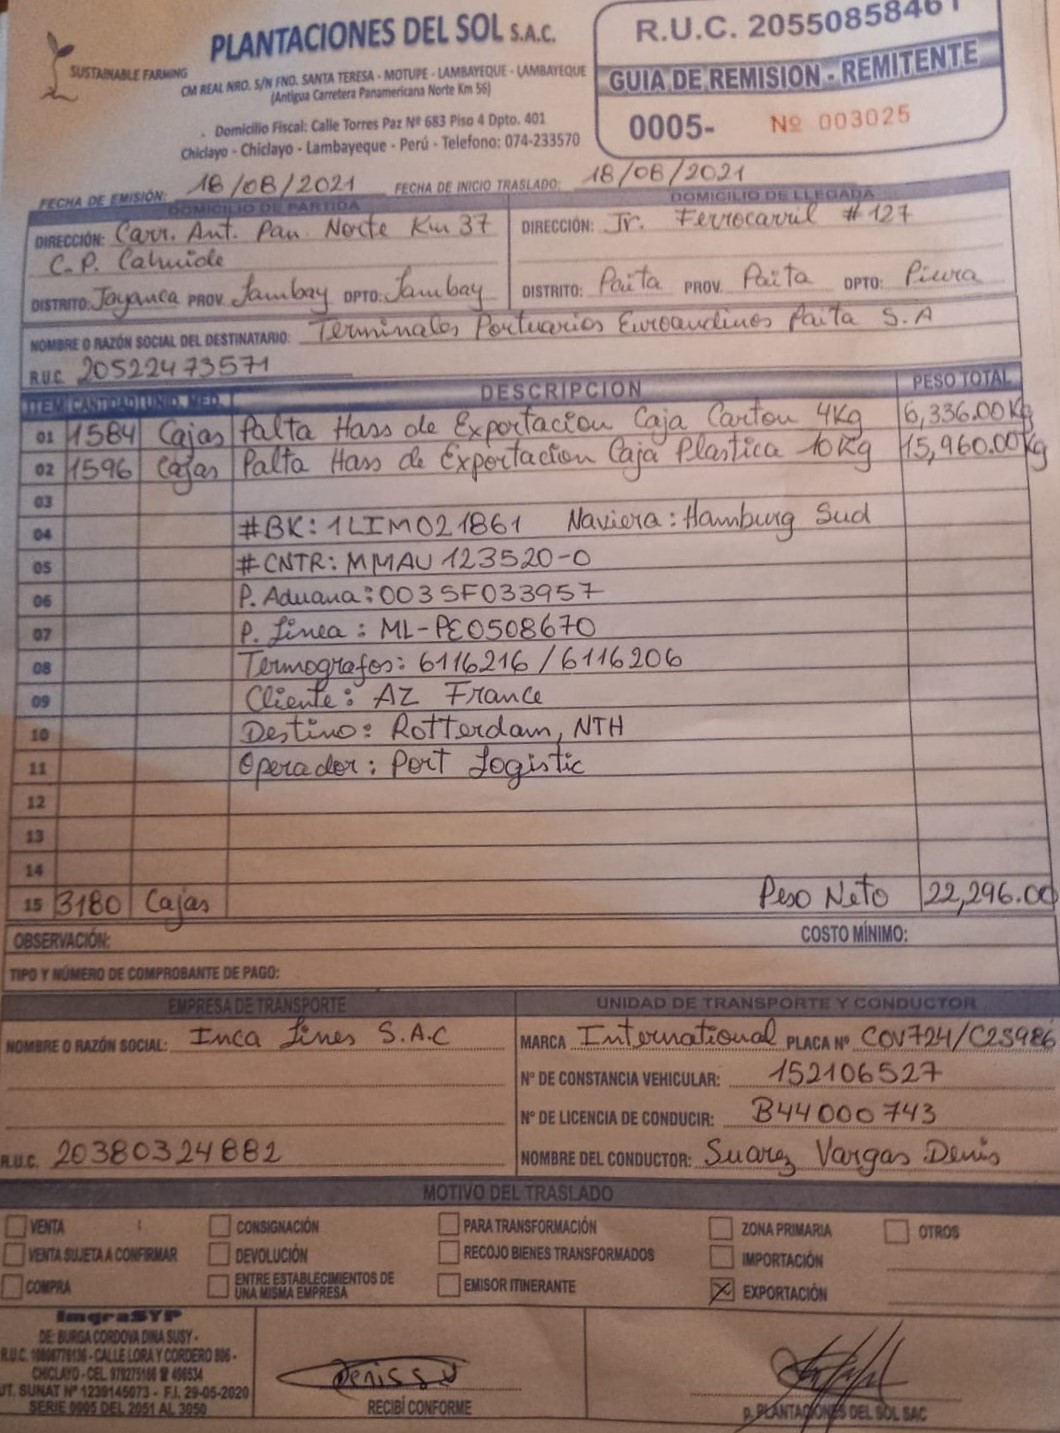 PLANTACIONES DEL SOL S.A.C.
SUSTAINABLE FARMING
CM REAL NRO. S/N FND. SANTA TERESA - MOTUPE - LAMBAYEQUE - LAMBAYEQUE
(Antigua Carretera Panamericana Norte Km 56)
Domicilio Fiscal: Calle Torres Paz Nº 683 Piso 4 Dpto. 401
Chiclayo - Chiclayo - Lambayeque - Perú - Telefono: 074-233570
R.U.C. 20550858461
GUIA DE REMISION - REMITENTE
0005- Nº 003025
FECHA DE EMISIÓN: 18/08/2021 FECHA DE INICIO TRASLADO: 18/08/2021
DOMICILIO DE PARTIDA
DIRECCIÓN: Carr. Ant. Pan. Norte Km 37
C.P. Cahuide
DISTRITO: Jayanca PROV. Lambay DPTO: Lambay
DOMICILIO DE LLEGADA
DIRECCIÓN: Jr. Ferrocarril # 127
DISTRITO: Paita PROV. Paita DPTO: Piura
NOMBRE O RAZÓN SOCIAL DEL DESTINATARIO: Terminales Portuarios Euroandinos Paita S.A
R.U.C. 20522473571
ITEM CANTIDAD UNID. MED. DESCRIPCION PESO TOTAL
01 1584 Cajas Palta Hass de Exportacion Caja Carton 4Kg 6,336.00Kg
02 1596 Cajas Palta Hass de Exportacion Caja Plastica 10Kg 15,960.00Kg
03
04 #BK: 1LIM021861 Naviera: Hamburg Sud
05 #CNTR: MMAU 123520-0
06 P. Aduana: 0035F033957
07 P. Linea: ML-PE0508670
08 Termografos: 6116216 / 6116206
09 Cliente: AZ France
10 Destino: Rotterdam, NTH
11 Operador: Port Logistic
12
13
14
15 3180 Cajas Peso Neto 22,296.00
OBSERVACIÓN: COSTO MÍNIMO:
TIPO Y NÚMERO DE COMPROBANTE DE PAGO:
EMPRESA DE TRANSPORTE
NOMBRE O RAZÓN SOCIAL: Inca Lines S.A.C
R.U.C. 20380324882
UNIDAD DE TRANSPORTE Y CONDUCTOR
MARCA International PLACA Nº COV724/C2S986
Nº DE CONSTANCIA VEHICULAR: 152106527
Nº DE LICENCIA DE CONDUCIR: B44000743
NOMBRE DEL CONDUCTOR: Suarez Vargas Denis
MOTIVO DEL TRASLADO
VENTA CONSIGNACIÓN PARA TRANSFORMACIÓN ZONA PRIMARIA OTROS
VENTA SUJETA A CONFIRMAR DEVOLUCIÓN RECOJO BIENES TRANSFORMADOS IMPORTACIÓN
COMPRA ENTRE ESTABLECIMIENTOS DE UNA MISMA EMPRESA EMISOR ITINERANTE EXPORTACIÓN
ImgraSYP
DE: BURGA CORDOVA DINA SUSY -
CALLE LORA Y CORDERO 806 -
CHICLAYO - CEL.
UT. SUNAT Nº 1239145073 - F.I. 29-05-2020
SERIE 0005 DEL 2051 AL 3050
RECIBÍ CONFORME
p. PLANTACIONES DEL SOL SAC